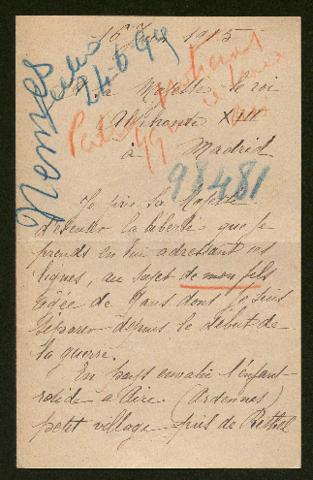 16 1915
A sa Majesté le roi
Alphonse XIII
à Madrid
98481
Je prie sa Majesté
d'excuser la liberté que je
prends en lui adressant ces
lignes, au sujet de mon fils
âgée de 7 ans dont je suis
séparée depuis le début de
la guerre.
En pays envahi l'enfant
réside à Aire (Ardennes)
petit village près de Rethel